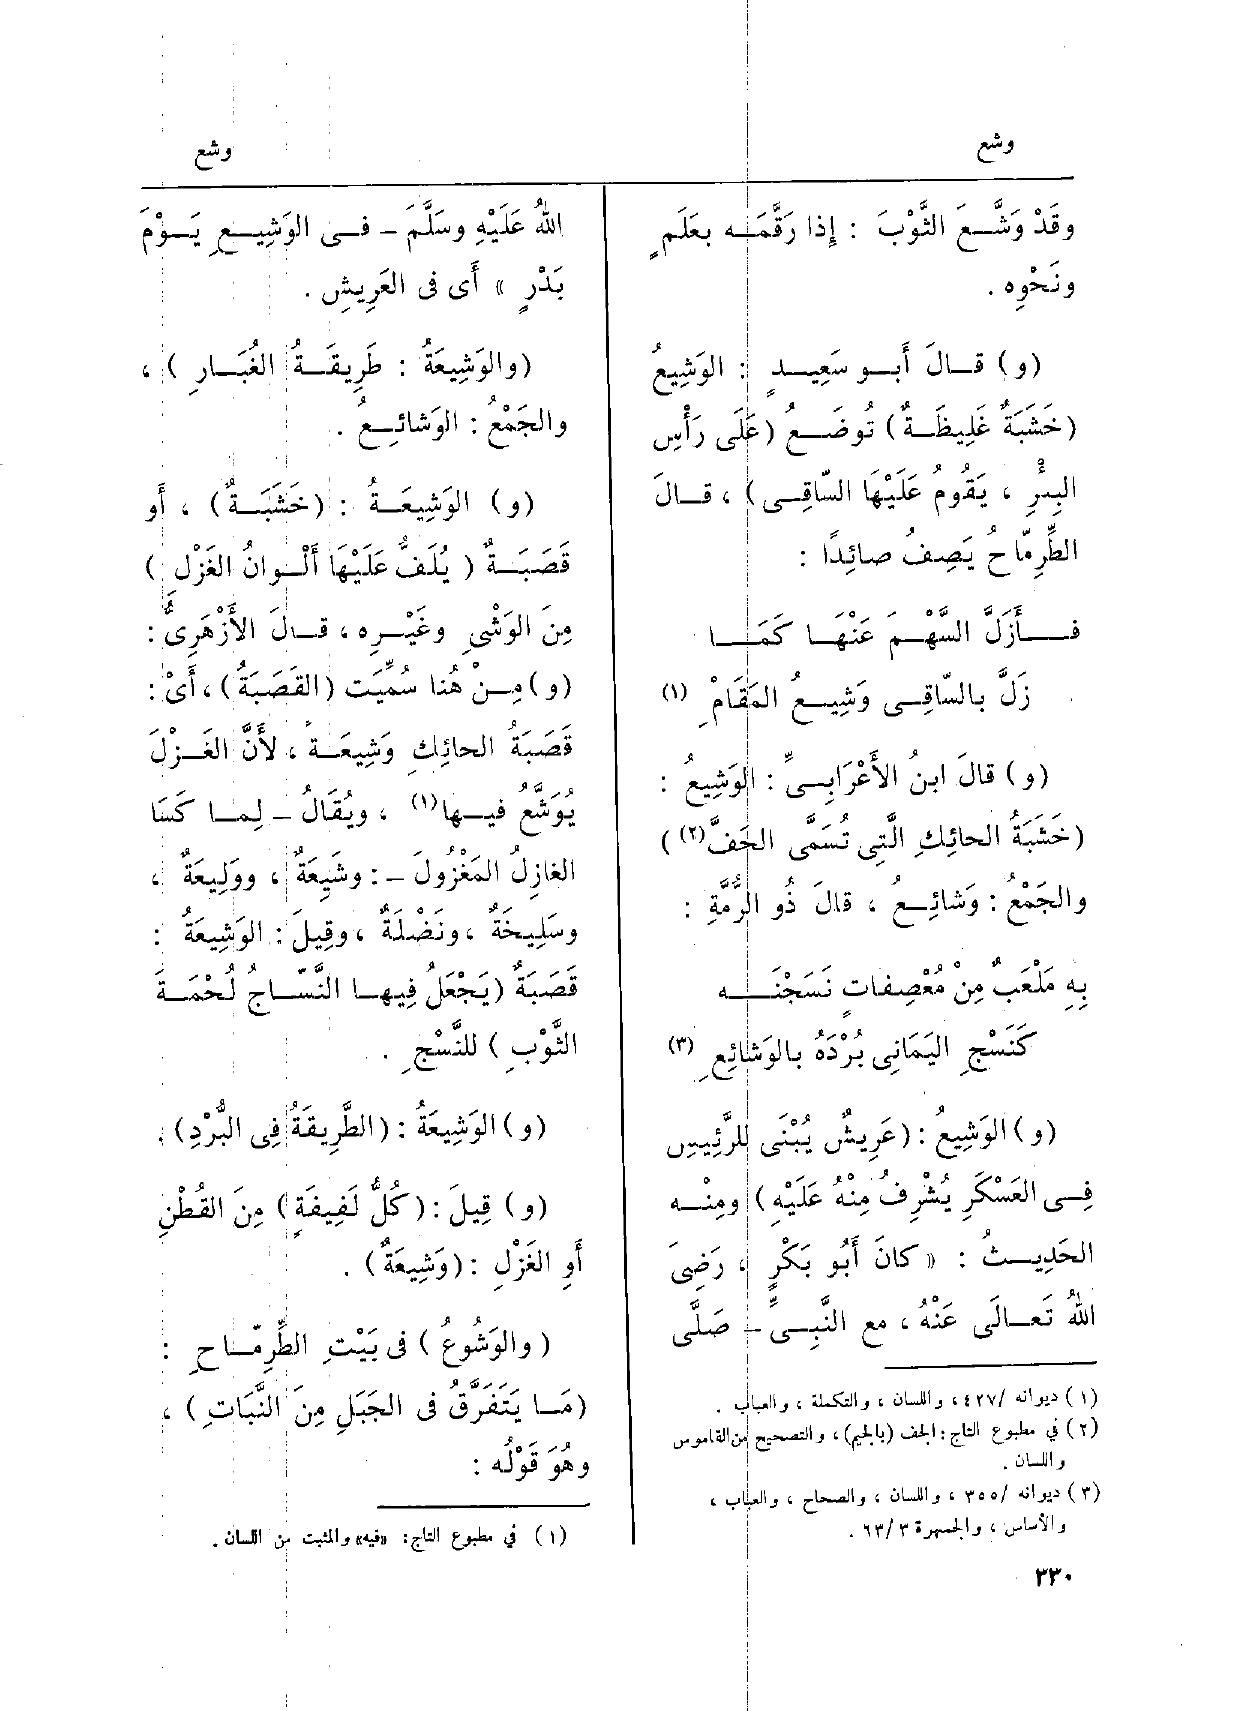 وشع
وشع
وقَدْ وَشَّعَ الثَّوْبَ : إِذا رَقَّمَه بعَلَمٍ
ونَحْوِه .
(و) قالَ أَبو سَعِيدٍ : الوَشِيعُ
(خَشَبَةٌ غَلِيظَةٌ) تُوضَعُ (عَلَى رَأْسِ
البِئْرِ ، يَقُومُ عَلَيْهَا السّاقِى) ، قالَ
الطِّرِمّاحُ يَصِفُ صائِدًا :
فَأَزَلَّ السَّهْمَ عَنْهَا كَمَا
زَلَّ بالسّاقِى وَشِيعُ المَقَامْ (١)
(و) قالَ ابنُ الأَعْرَابِىِّ : الوَشِيعُ :
(خَشَبَةُ الحائِكِ الَّتِى تُسَمَّى الحَفَّ(٢))
والجَمْعُ : وَشائِعُ ، قالَ ذُو الرُّمَّةِ :
بِهِ مَلْعَبٌ مِنْ مُعْصِفاتٍ نَسَجْنَه
كَنَسْجِ اليَمَانِى بُرْدَهُ بالوَشائِعِ (٣)
(و) الوَشِيعُ : (عَرِيشٌ يُبْنَى للرَّئِيسِ
فِى العَسْكَرِ يُشْرِفُ مِنْهُ عَلَيْهِ) ومِنْه
الحَدِيثُ : « كانَ أَبُو بَكْرٍ ، رَضِىَ
اللهُ تَعالَى عَنْهُ ، مع النَّبِىِّ – صَلَّى
(١) ديوانه /٤٢٧، واللسان ، والتكملة ، والعباب .
(٢) في مطبوع التاج : الجف (بالجيم) ، والتصحيح من القاموس
واللسان .
(٣) ديوانه /٣٥٥ ، واللسان ، والصحاح ، والعباب ،
والأساس ، والجمهرة ٣/ ٦٣ .
٣٣٠
اللهُ عَلَيْهِ وسَلَّمَ – فى الوَشِيعِ يَوْمَ
بَدْرٍ » أَى فى العَرِيشِ .
(والوَشِيعَةُ : طَرِيقَةُ الغُبَارِ) ،
والجَمْعُ : الوَشائِعُ .
(و) الوَشِيعَةُ : (خَشَبَةٌ) ، أَو
قَصَبَةٌ ( يُلَفُّ عَلَيْهَا أَلْوانُ الغَزْلِ )
مِنَ الوَشْىِ وغَيْرِه ، قالَ الأَزْهَرِىُّ :
(و) مِنْ هُنا سُمِّيَت (القَصَبَةُ) ، أَىْ :
قَصَبَةُ الحائِكِ وَشِيعَةً ، لأَنَّ الغَزْلَ
يُوَشَّع فيها(١) ، ويُقَالُ – لِما كَسَا
الغازِلُ المَغْزُولَ – : وشَيِعَةٌ ، ووَلِيعَةٌ ،
وسَلِيخَةٌ ، ونَضْلَةٌ ، وقِيلَ : الوَشِيعَةُ :
قَصَبَةٌ (يَجْعَلُ فِيها النَّسّاجُ لُحْمَةَ
الثَّوْبِ ) للنَّسْجِ .
(و) الوَشِيعَةُ : (الطَّرِيقَةُ فِى البُرْدِ) .
(و) قِيلَ : (كُلُّ لَفِيفَةٍ) مِنَ القُطْنِ
أَوِ الغَزْلِ : (وَشِيعَةٌ) .
(والوَشُوعُ) فى بَيْتِ الطِّرِمّاحِ :
(مَا يَتَفَرَّقُ فى الجَبَلِ مِنَ النَّبَاتِ) ،
وهُوَ قَوْلُه :
(١) في مطبوع التاج : «فيه» والمثبت من اللسان .